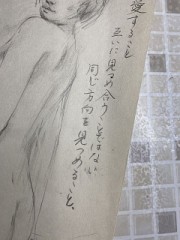 愛すること
互いに見つめ合うことではない
同じ方向を見つめること、